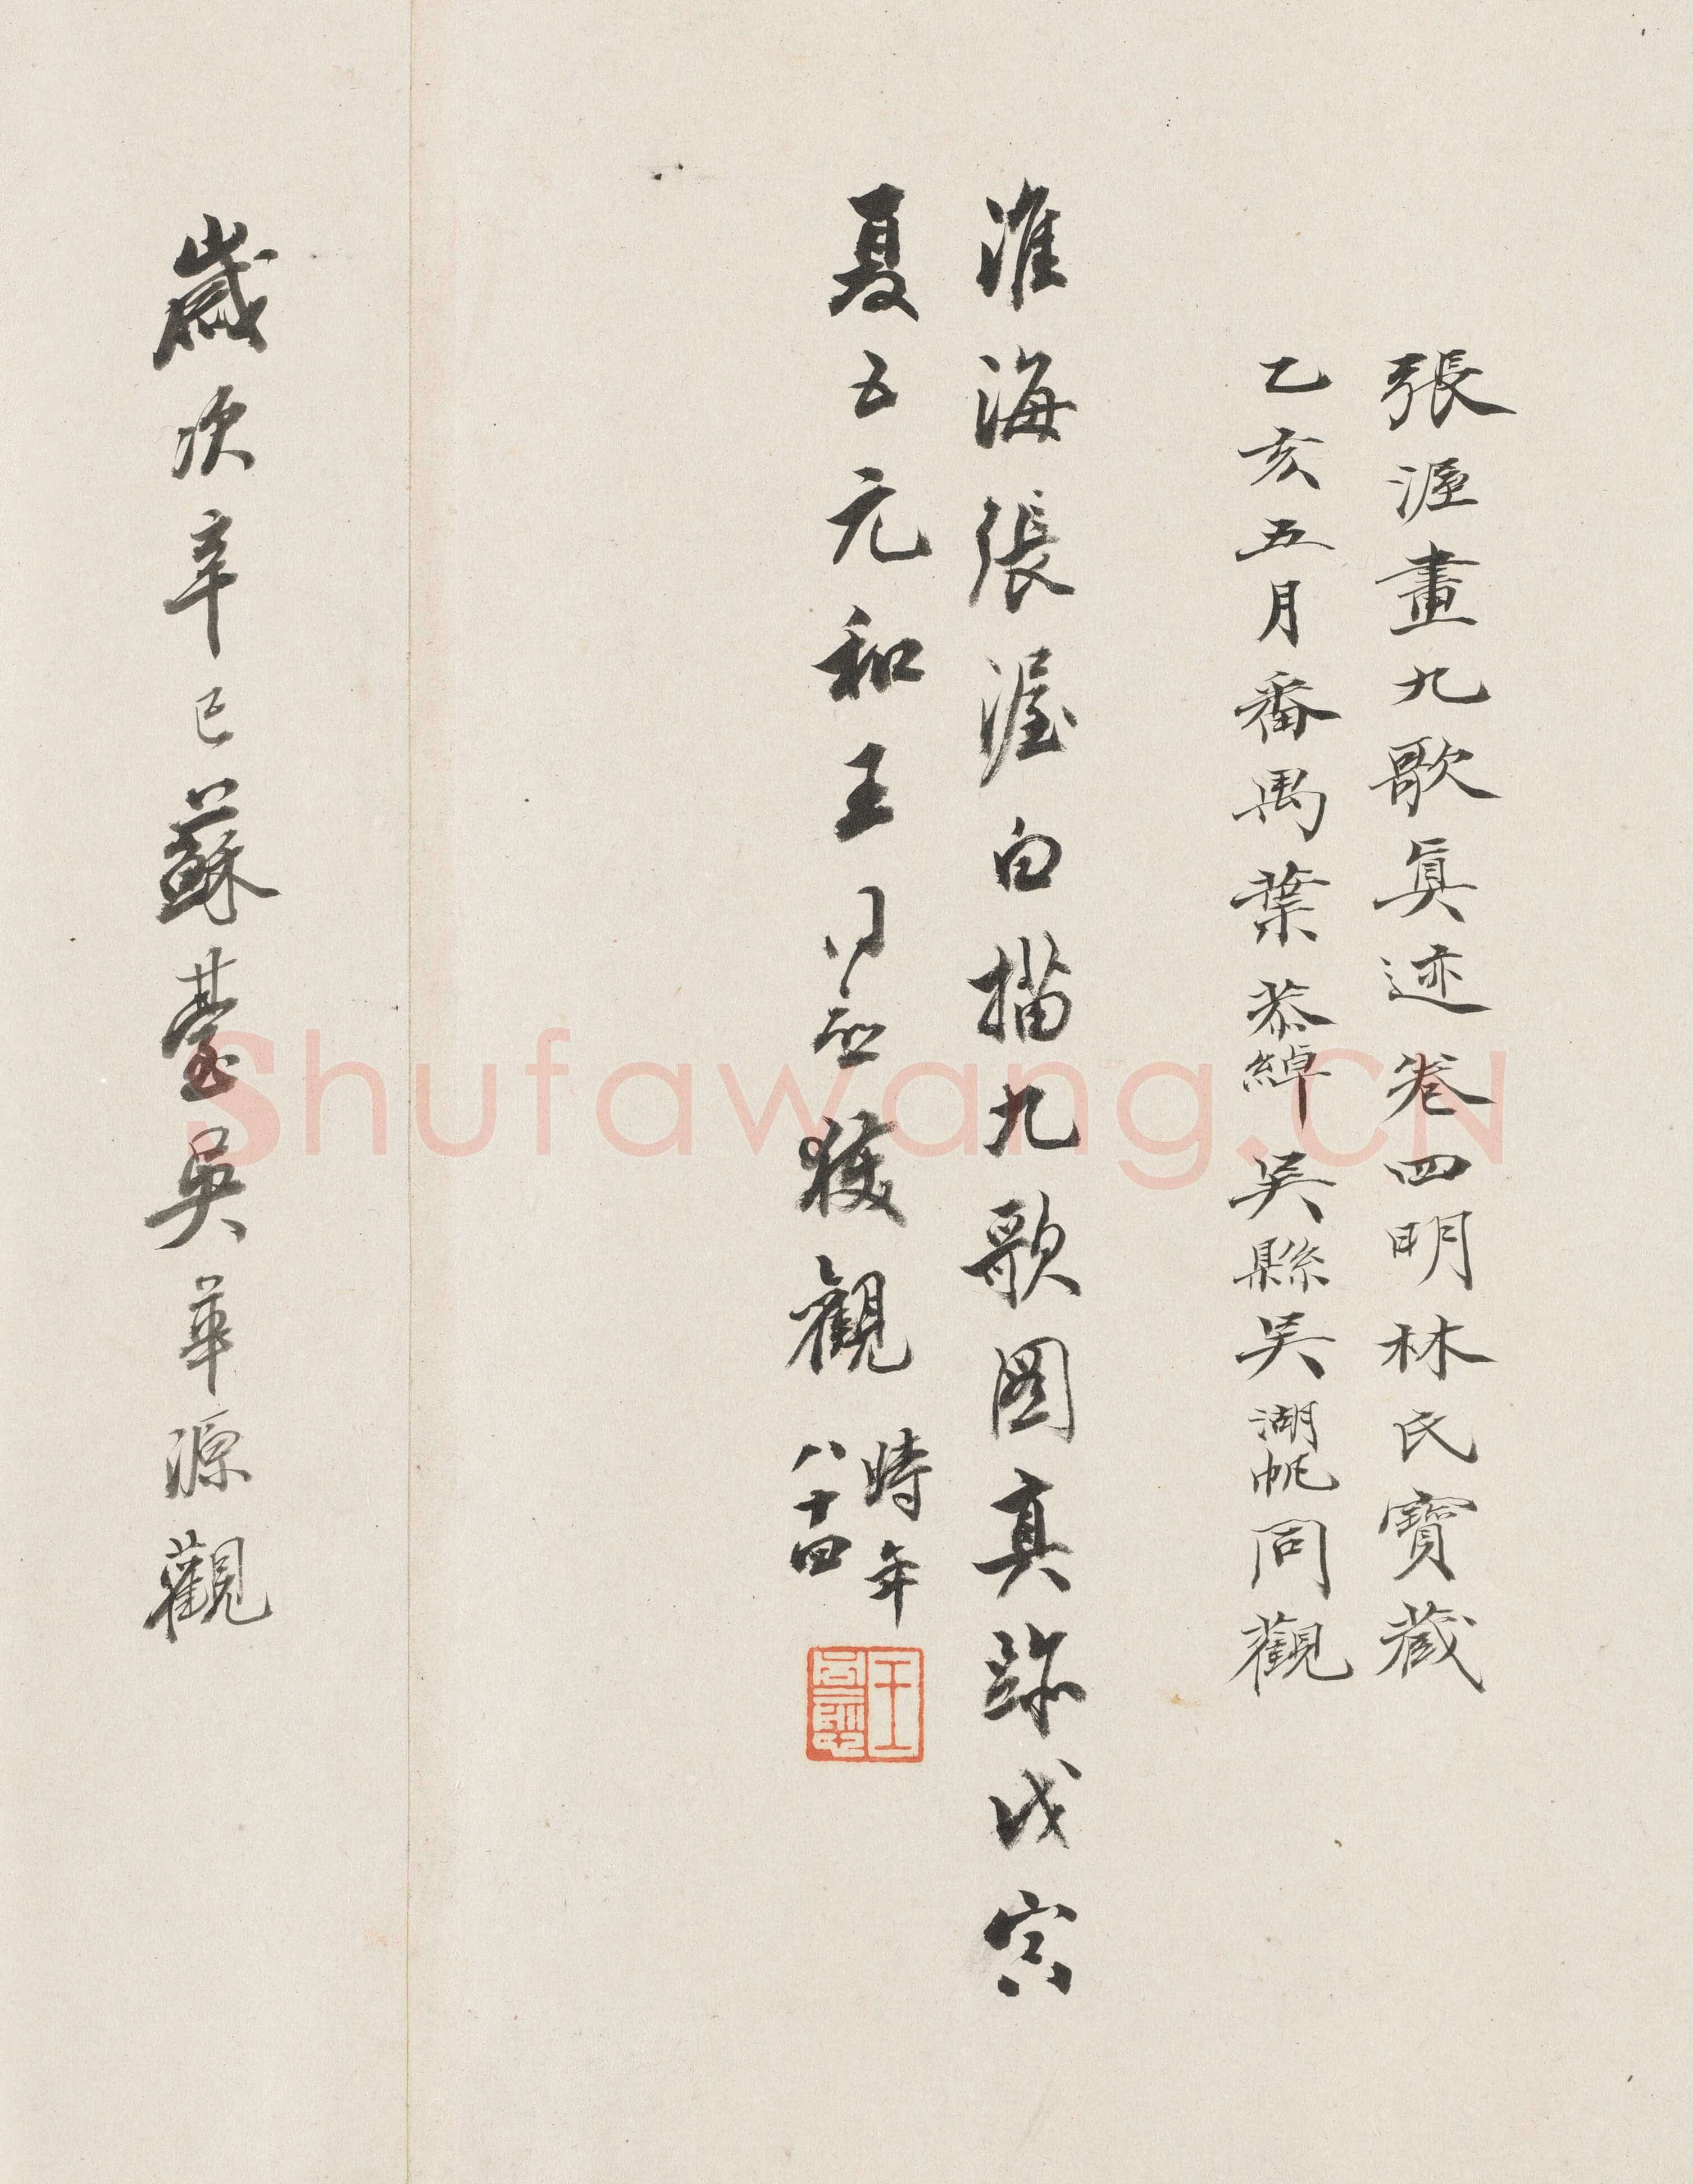 張渥畫九歌真迹卷四明林氏寶藏
乙亥五月番禺葉恭綽吳縣吳湖帆同觀
淮海張渥白描九歌圖真跡戊寅
夏五元和王同愈獲觀
時年
八十四
歲次辛巳蘇臺吳華源觀
Shufawang.CN